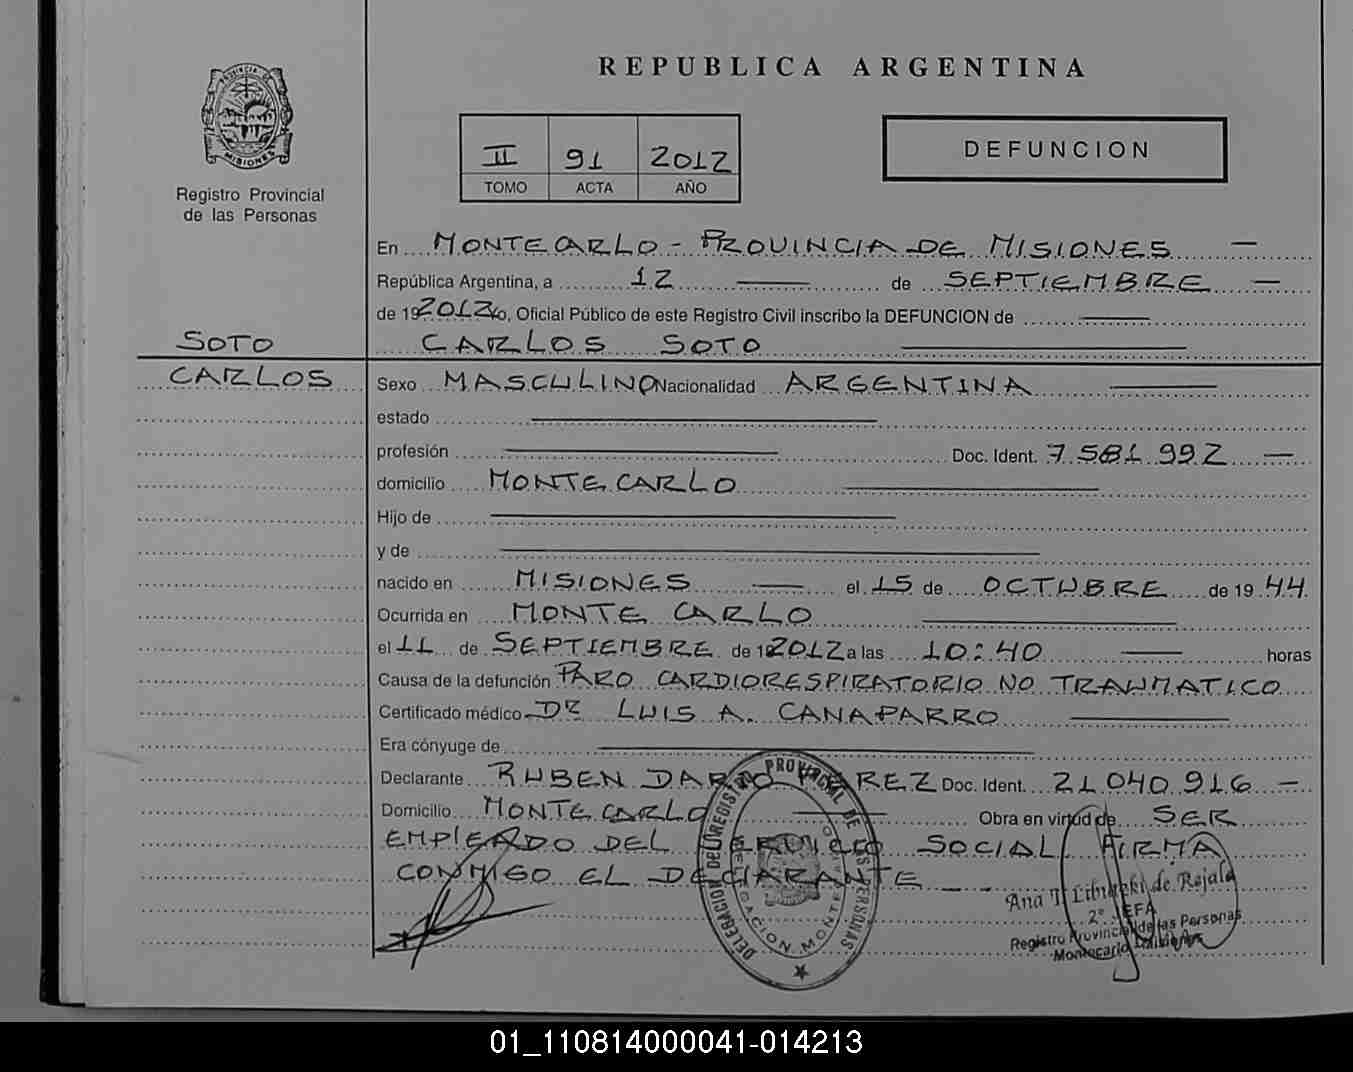 REPUBLICA ARGENTINA
PROVINCIA DE
MISIONES
Registro Provincial
de las Personas
II 91 2012
TOMO ACTA AÑO
DEFUNCION
En MONTECARLO - PROVINCIA DE MISIONES —
República Argentina, a 12 — de SEPTIEMBRE —
de 19 2012 yo, Oficial Público de este Registro Civil inscribo la DEFUNCION de —
SOTO
CARLOS SOTO —
CARLOS
Sexo MASCULINO Nacionalidad ARGENTINA —
estado —
profesión — Doc. Ident. 7 581 992 —
domicilio MONTECARLO —
Hijo de —
y de —
nacido en MISIONES — el 15 de OCTUBRE de 19 44
Ocurrida en MONTE CARLO —
el 11 de SEPTIEMBRE de 19 2012 a las 10:40 — horas
Causa de la defunción PARO CARDIORESPIRATORIO NO TRAUMATICO
Certificado médico DR LUIS A. CANAPARRO —
Era cónyuge de —
Declarante RUBEN DARIO PEREZ Doc. Ident. 21 040 916 —
Domicilio MONTECARLO — Obra en virtud de SER
EMPLEADO DEL SERVICIO SOCIAL FIRMA
CONMIGO EL DECLARANTE — -
DELEGACION DEL REGISTRO PROVINCIAL DE LAS PERSONAS
Ana de Rejala
2° JEFA
Registro Provincial de las Personas
Montecarlo Misiones
01_110814000041-014213